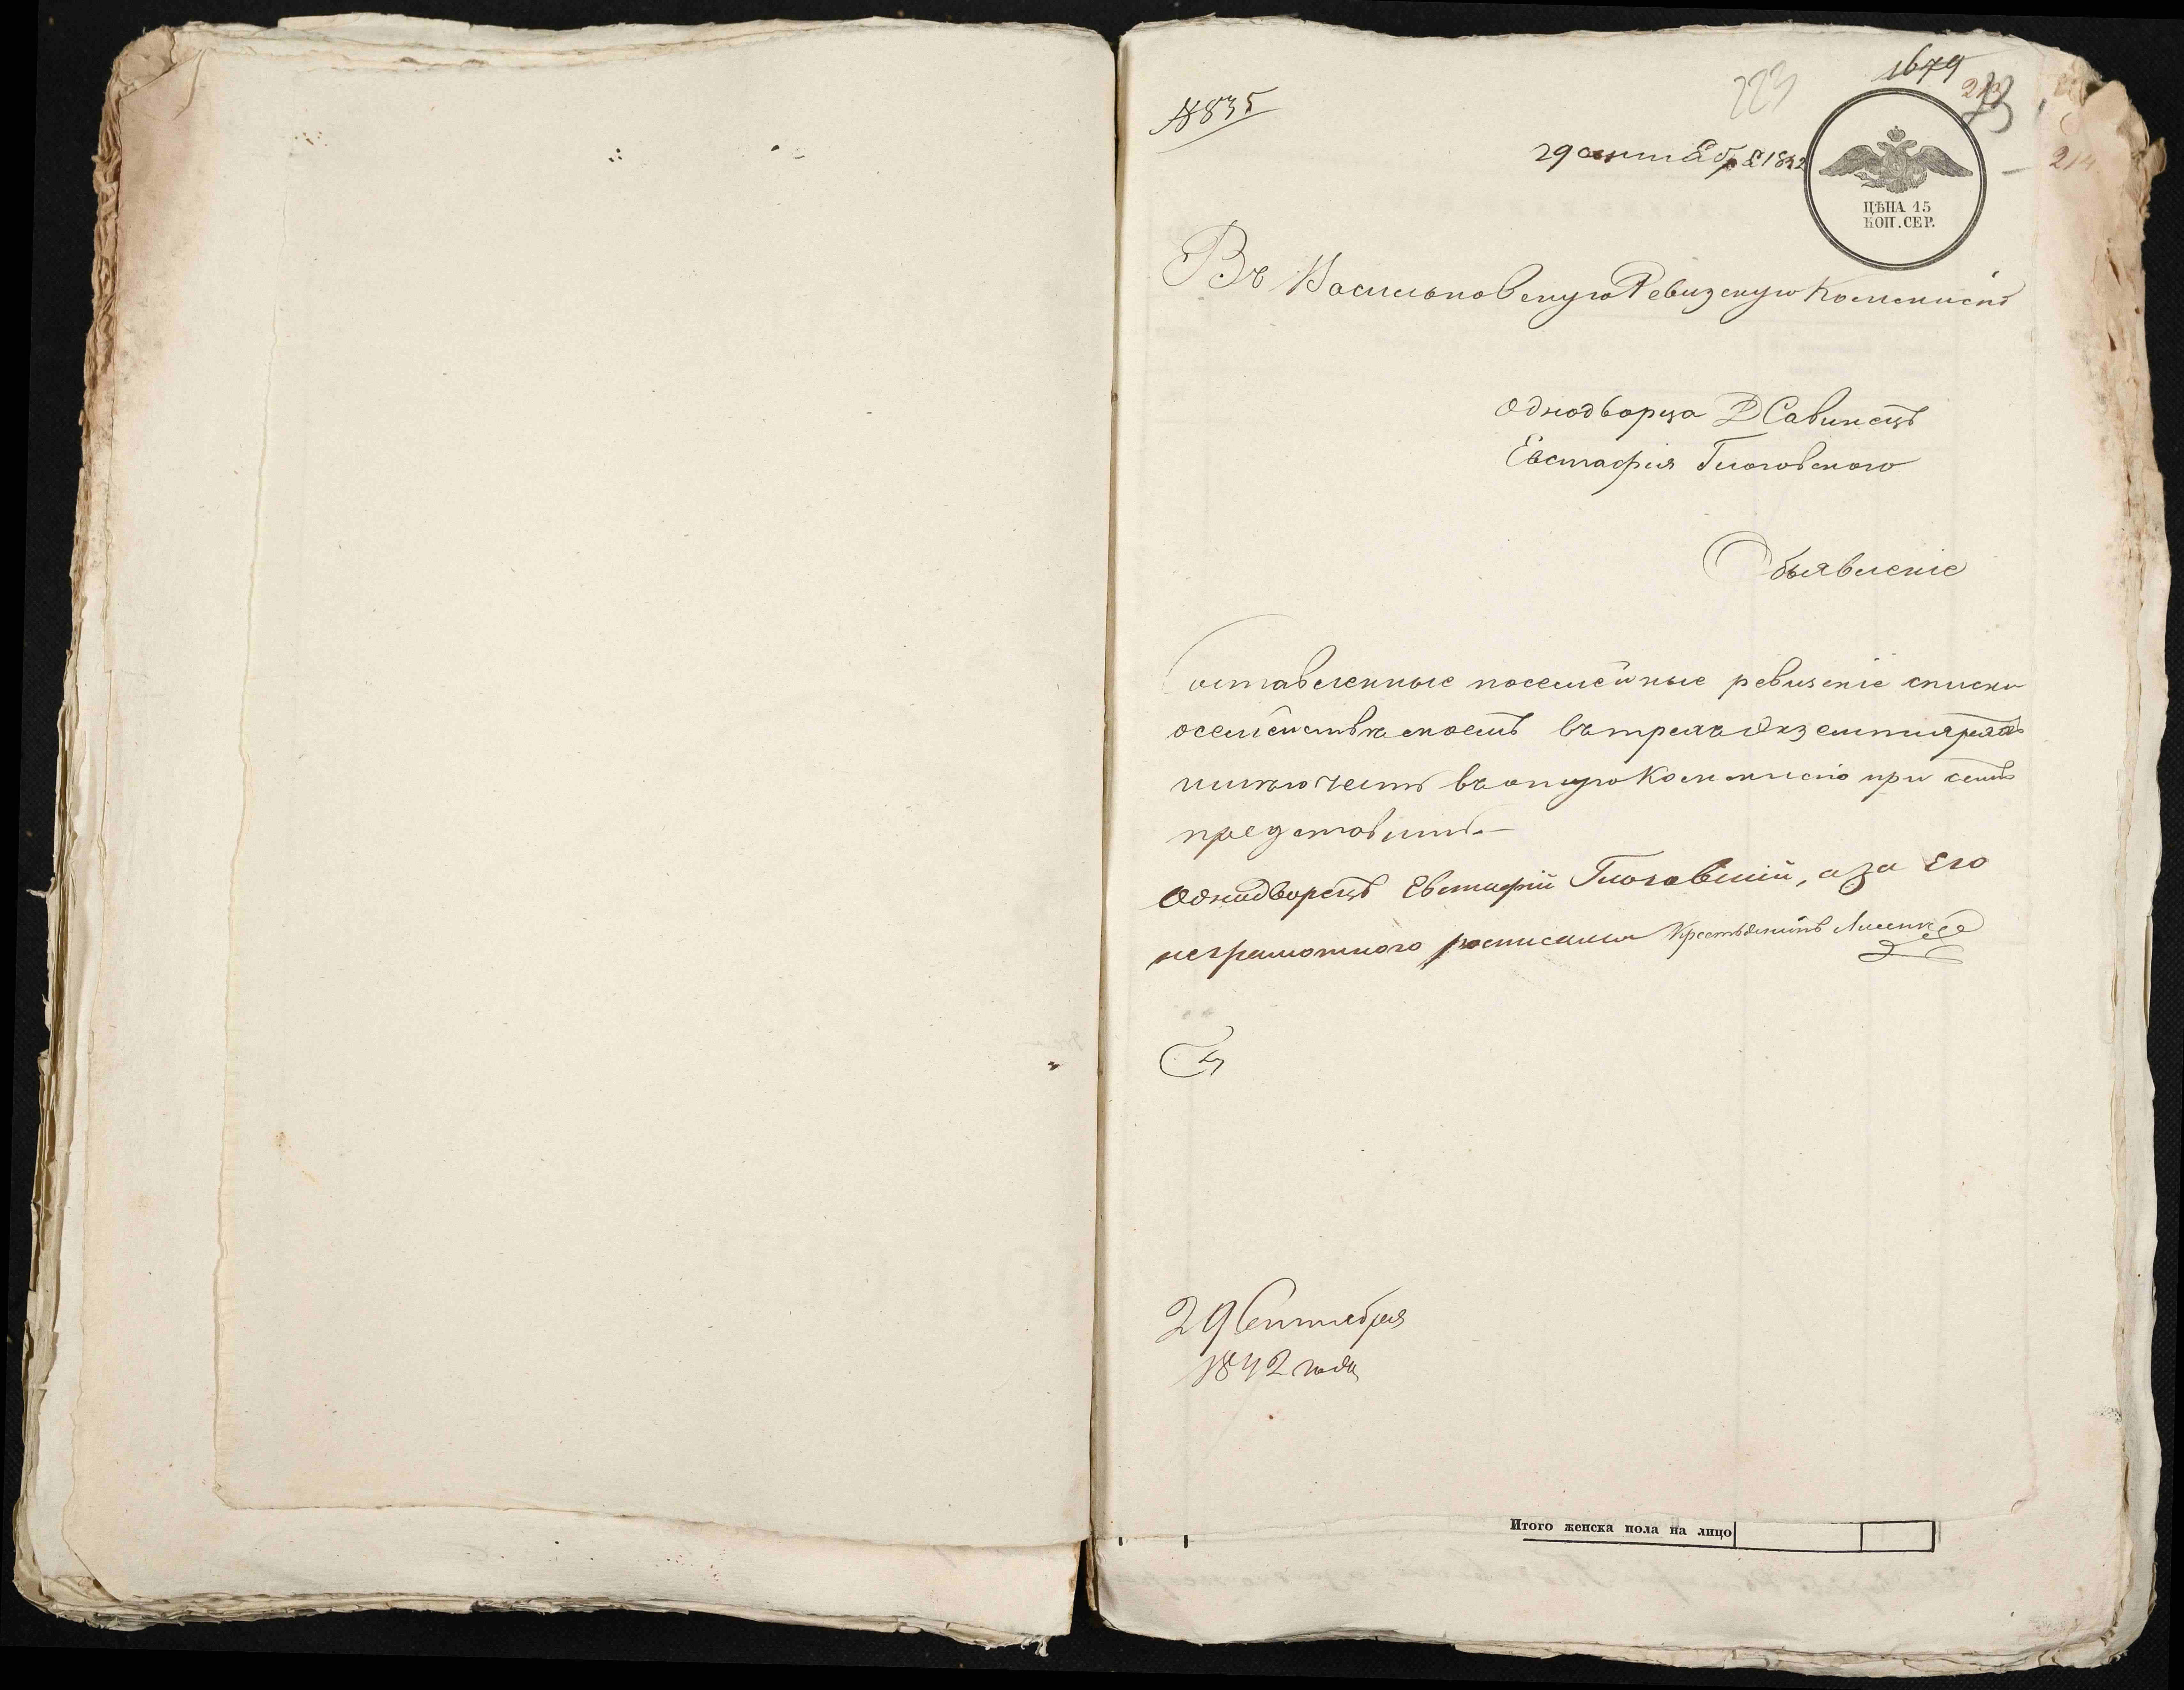 №835
1679
223
213
214
29 сентября 1842
ЦѢНА 15
КОП. СЕР.
Въ Васильковскую Ревизскую Коммисію
Однодворца Д Савинецъ
Евстафія Глоговского
Объявленіе
Составленные посемейные ревизскіе списки
осемействѣ моемъ въ трехъ Экземплярахъ
имѣю честь въ оную Коммисію при семъ
представить.—
Однодворецъ Евстафій Глоговскій, а за Его
неграмотного росписался Крестьянинъ
29 Сентября
1842 года
Итого женска пола на лицо